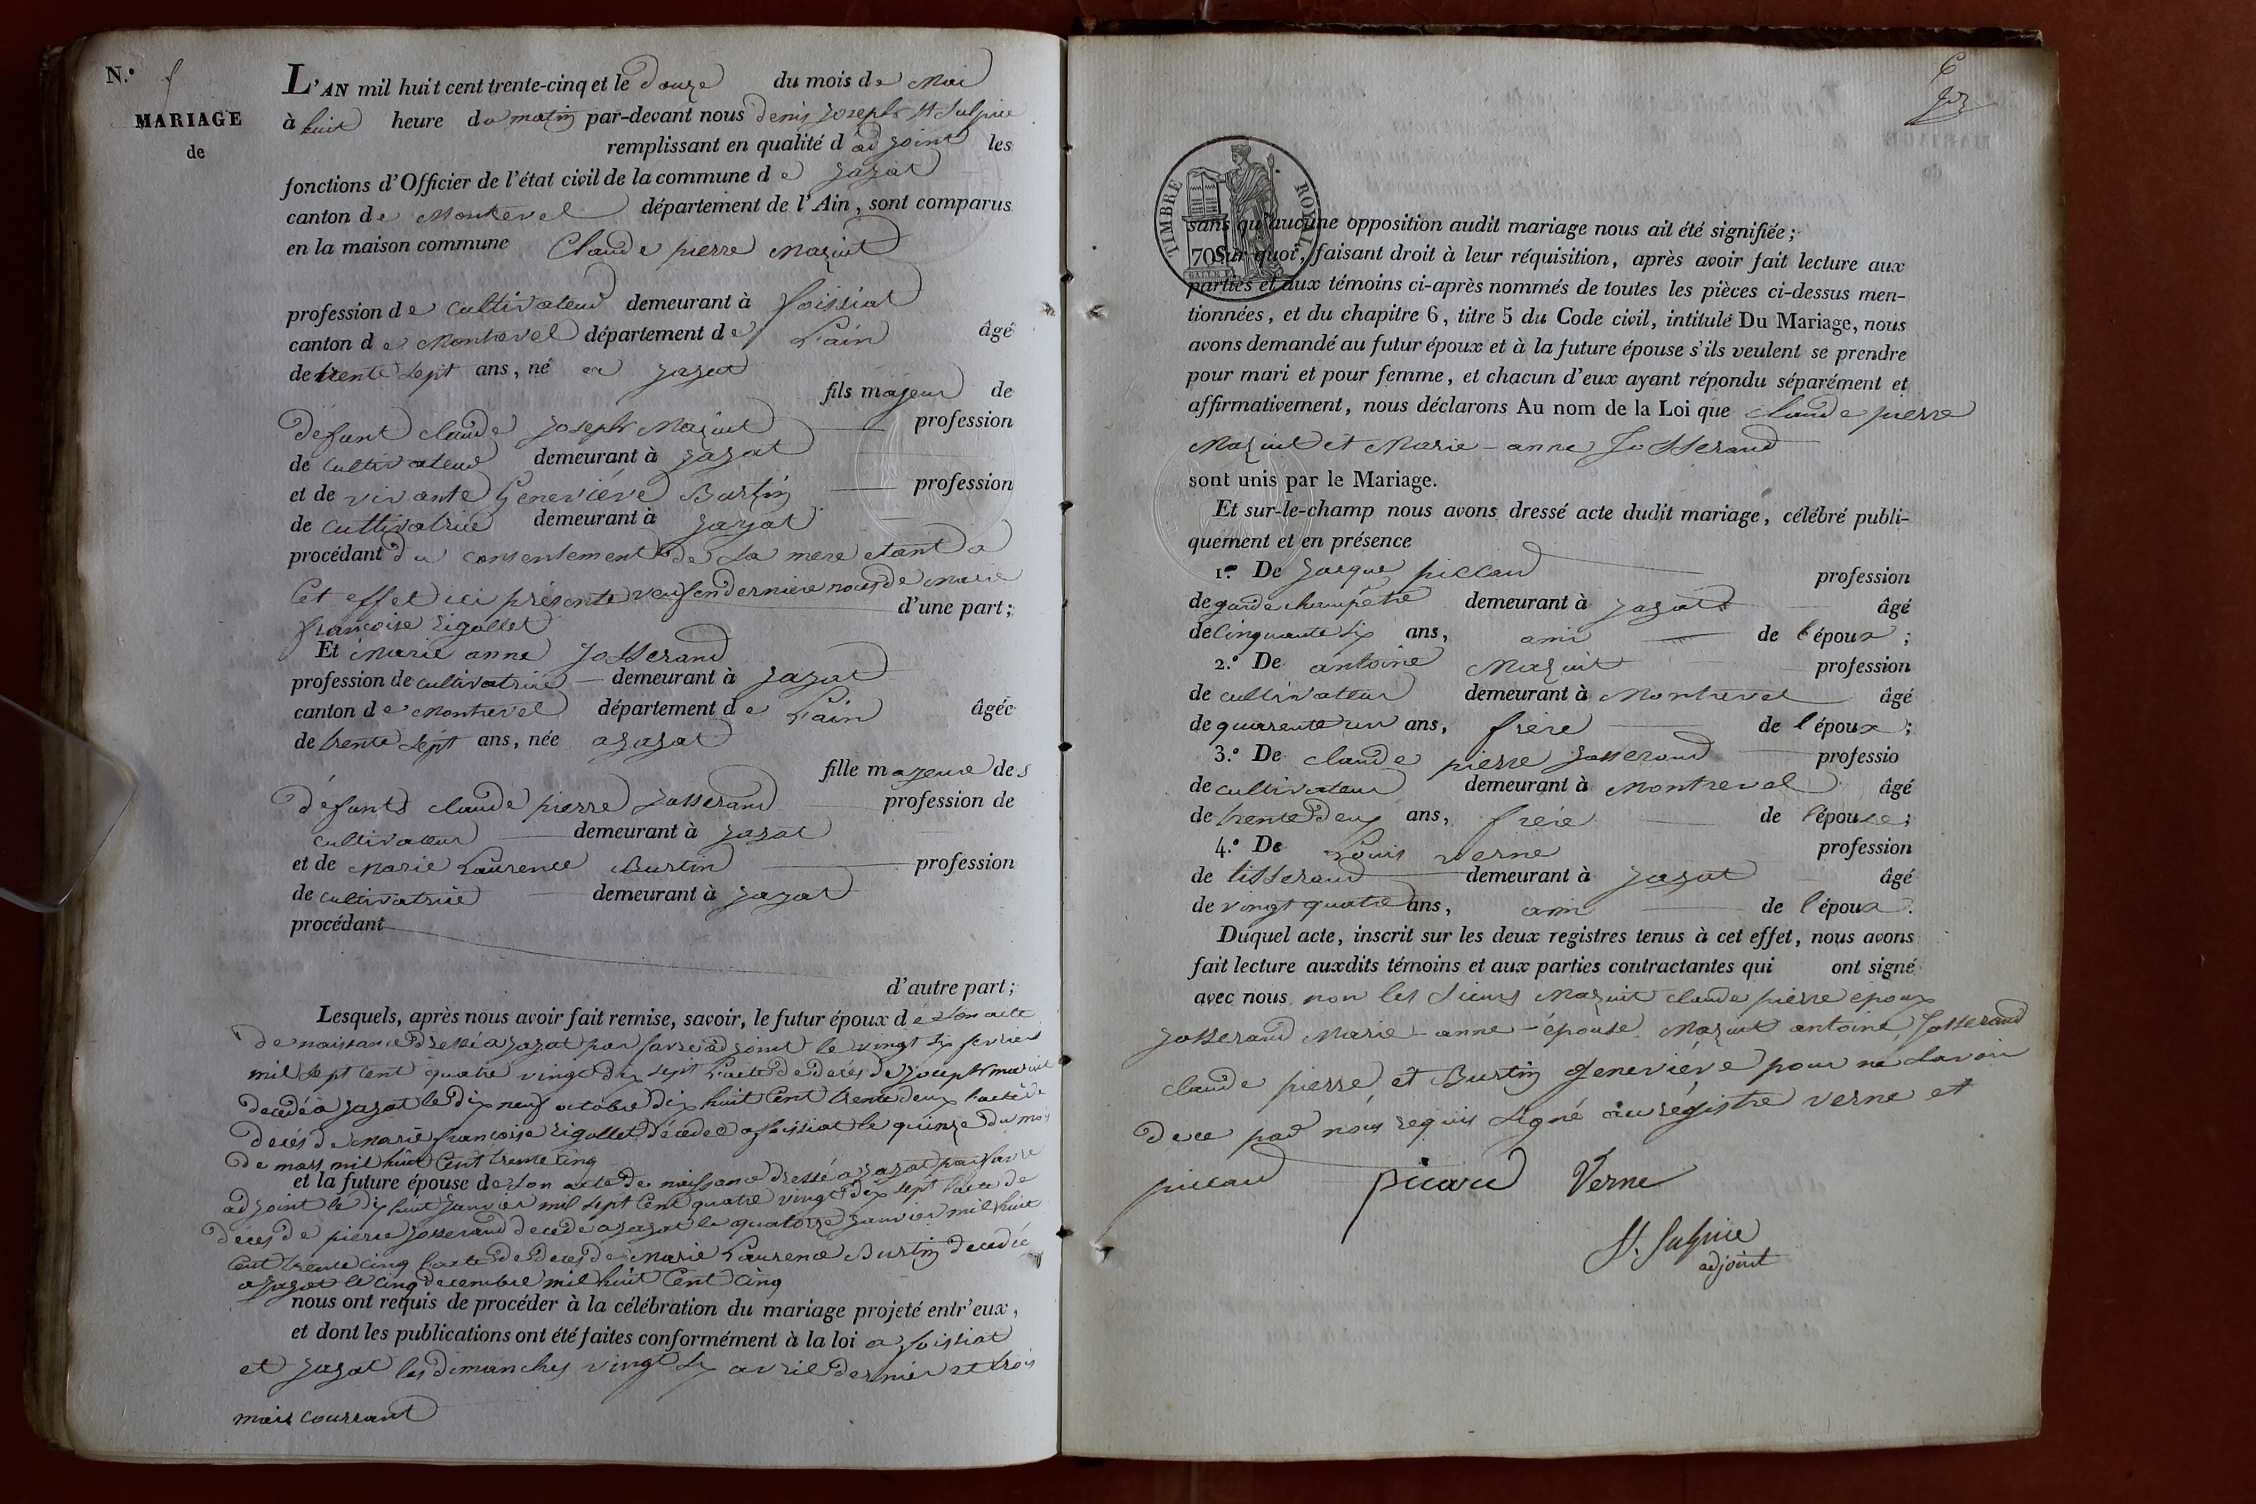 N.°
MARIAGE
de
L'AN mil huit cent trente-cinq et le douze du mois de Mai
à huit heure du matin par-devant nous denis joseph St Sulpice
remplissant en qualité d'adjoint les
fonctions d'Officier de l'état civil de la commune de jayat
canton de Montrevel département de l'Ain, sont comparus
en la maison commune Claude pierre Mazuit
profession de cultivateur demeurant à foissiat
canton de Montrevel département de L'ain âgé
de trente sept ans, né a jayat
fils majeur de
défunt claude joseph Mazuit profession
de cultivateur demeurant à jayat
et de vivante Geneviéve Burtin profession
de cultivatrice demeurant à jayat
procédant du consentement de La mere etant a
Cet effet ici présente veuf en derniere noces de marie
d'une part;
françoise Rigollet
Et Marie anne josserand
profession de cultivatrice demeurant à jayat
canton de Montrevel département de L'ain âgée
de trente sept ans, née a jayat
fille majeure des
défunts claude pierre josserand profession de
cultivateur demeurant à jayat
et de Marie Laurence Burtin profession
de cultivatrice demeurant à jayat
procédant
d'autre part;
Lesquels, après nous avoir fait remise, savoir, le futur époux de son acte
de naissance dressé a jayat par favre adjoint le vingt six fevrier
mil sept cent quatre vingt dix sept L'acte de decés de joseph mazuit
decedé a jayat le dix neuf octobre dix huit Cent trente deux L'acte de
decés de Marie françoise Rigollet décédée a foissiat le quinze du mois
de mars mil huit Cent trente cinq
et la future épouse de son acte de naissance dressé a jayat par favre
adjoint le dix huit janvier mil sept Cent quatre vingt dix sept L'acte de
déces de pierre josserand decede a jayat le quatorze janvier mil huit
Cent trente cinq L'acte de deces de Marie Laurence Burtin decedée
a jayat le cinq decembre mil huit Cent cinq
nous ont requis de procéder à la célébration du mariage projeté entr'eux,
et dont les publications ont été faites conformément à la loi a foissiat
et jayat les dimanches vingt six avril dernier et trois
mais courrant
6
TIMBRE ROYAL
70
sans qu'aucune opposition audit mariage nous ait été signifiée;
Sur quoi, faisant droit à leur réquisition, après avoir fait lecture aux
parties et aux témoins ci-après nommés de toutes les pièces ci-dessus men-
tionnées, et du chapitre 6, titre 5 du Code civil, intitulé Du Mariage, nous
avons demandé au futur époux et à la future épouse s'ils veulent se prendre
pour mari et pour femme, et chacun d'eux ayant répondu séparément et
affirmativement, nous déclarons Au nom de la Loi que claude pierre
Mazuit et Marie-anne Josserand
sont unis par le Mariage.
Et sur-le-champ nous avons dressé acte dudit mariage, célébré publi-
quement et en présence
1.° De jacque piccaud profession
de garde champétre demeurant à jayat âgé
de Cinquante six ans, ami de l'époux;
2.° De antoine Mazuit profession
de cultivateur demeurant à Montrevel âgé
de quarente un ans, frère de l'époux;
3.° De claude pierre josserand professio
de cultivateur demeurant à Montrevel âgé
de trente deux ans, frére de l'épouse;
4.° De Louis verne profession
de tisserand demeurant à jayat âgé
de vingt quatre ans, ami de l'époux.
Duquel acte, inscrit sur les deux registres tenus à cet effet, nous avons
fait lecture auxdits témoins et aux parties contractantes qui ont signé
avec nous non les sieurs Mazuit claude pierre epoux
josserand Marie-anne-épouse Mazuit antoine Josserand
claude pierre et Burtin geneviéve pour ne savoir
de ce par nous requis signé au régistre verne et
piccaud picard Verne
St. Sulpice
adjoint